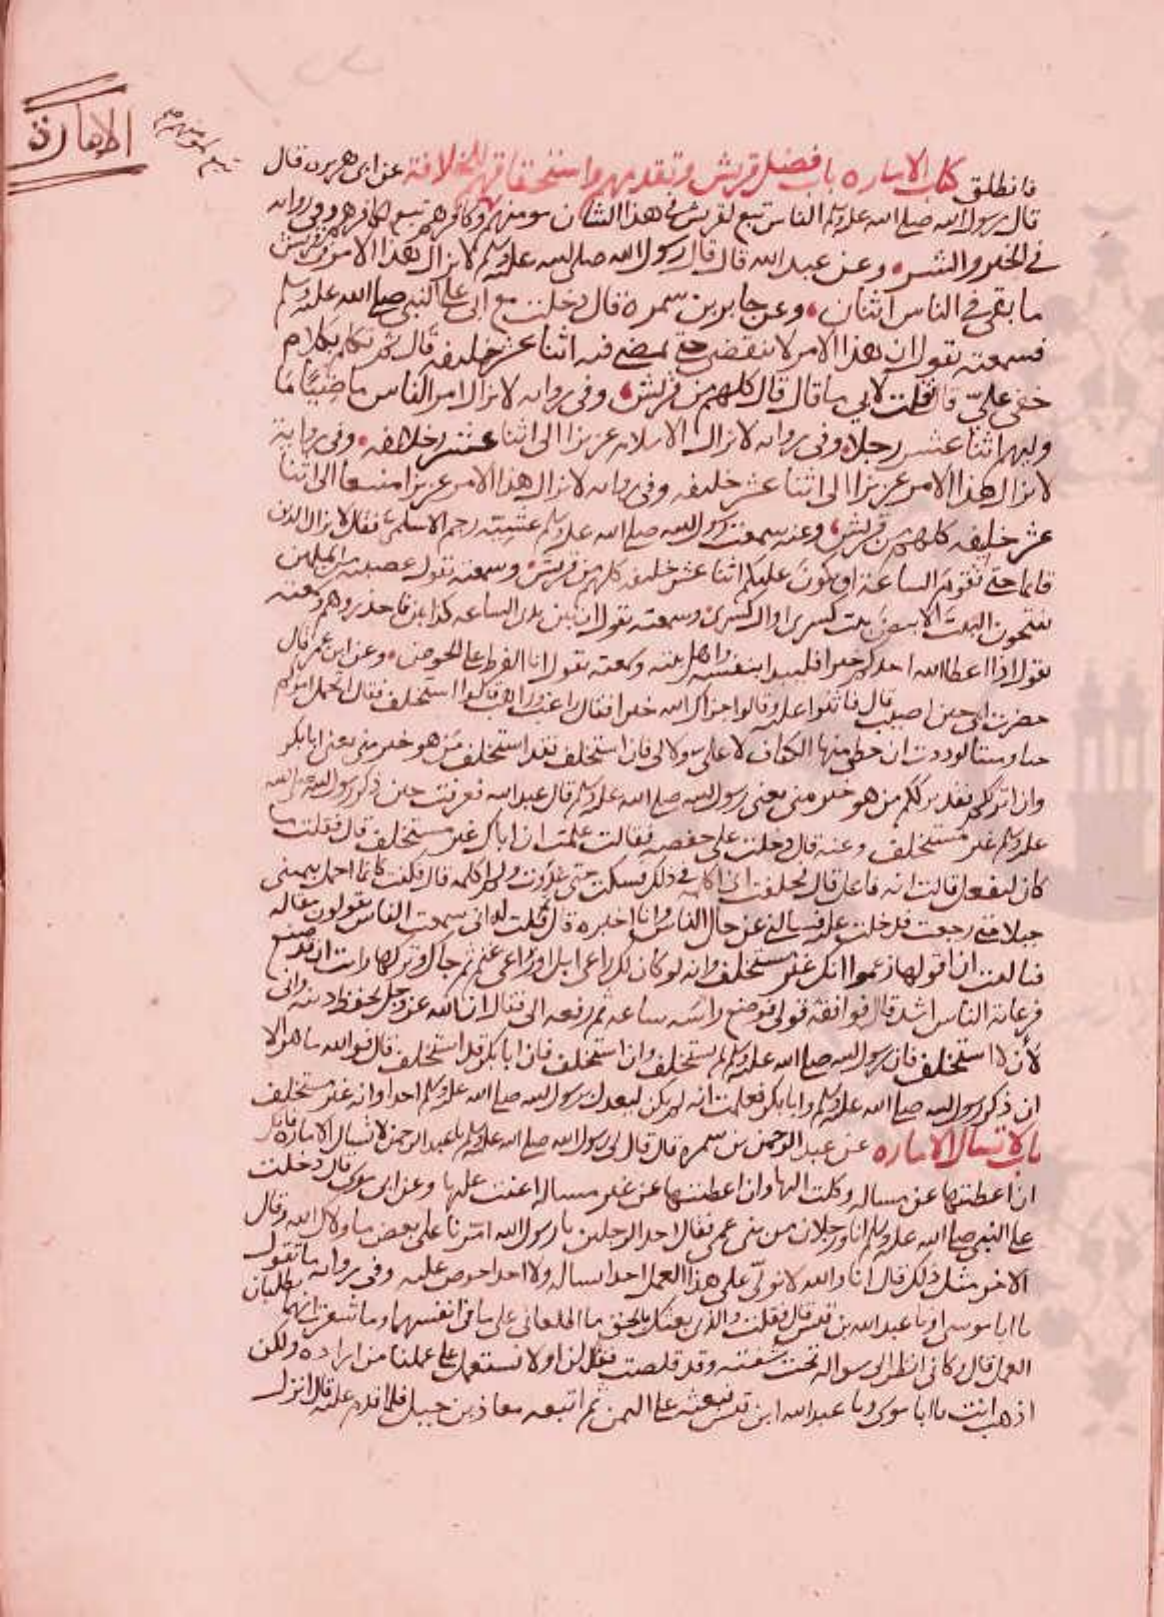 الإمارة
تبع لمؤمنهم صح
فانطلق كتاب الاماره باب فضل قريش وتقدمهم واستحقاقهم للخلافة عن ابى هريره قال
قال رسول الله صلى الله عليه وسلم الناس تبع لقريش فى هذا الشان مومنهم وكافرهم تبع لكافرهم وفى روايه
فى الخير والشر وعن عبد الله قال قال رسول الله صلى الله عليه وسلم لا يزال هذا الامر فى قريش
ما بقى فى الناس اثنان وعن جابر بن سمرة قال دخلت مع ابى على النبى صلى الله عليه وسلم
فسمعته يقول ان هذا الامر لا ينقضى حتى يمضى فيه اثنا عشر خليفه قال ثم تكلم بكلام
خفى علىّ قال فقلت لابي ما قال قال كلهم من قريش وفى روايه لا يزال امر الناس ماضيًا مَا
وليهم اثنا عشر رجلا وفى روايه لا يزال الاسلام عزيزا الى اثنا عشر خلافه وفى رواية
لا يزال هذا الامر عزيزا الى اثنا عشر خليفه وفى روايه لا يزال هذا الامر عزيزا منيعا الى اثنا
عشر خليفه كلهم من قريش وعنه سمعت رسول الله صلى الله عليه وسلم عشيّة رجم الاسلمى فقال لا يزال الدين
قائما حتى تقوم الساعة او يكون عليكم اثنا عشر خليفه كلهم من قريش وسمعته يقول عصيبه من المسلمين
يفتحون البيت الابيض بيت كسرى او ال كسرى وسمعته يقول ان بين يدى الساعه كذابين فاحذروهم وسمعته
يقول اذا اعطا الله احدكم خيرا فليبدا بنفسه واهل بيته وسمعته يقول انا الفرط على الحوض وعن ابن عمر قال
حضرت ابى حين اصيب قال فاثنوا عليه وقالوا جزاك الله خيرا فقال راغب وراهب قالوا استخلف فقال اتحمل امركم
حيا وميتا لوددت ان حظى منها الكفاف لا على ولا لى فان استخلف فقد استخلف من هو خير منى يعنى ابا بكر
وان اترككم فقد ترككم من هو خير منى يعنى رسول الله صلى الله عليه وسلم قال عبد الله فعرفت حين ذكر رسول الله صلى الله
عليه وسلم غير مستخلف وعنه قال دخلت على حفصه فقالت علمت ان اباك غير مستخلف قال فقلت ما
كان ليفعل قالت انه فاعل قال فحلفت انى اكلمه فى ذلك فسكت حتى غدوت ولم اكلمه قال فكنت كانما احمل بيمينى
جبلا حتى رجعت فدخلت عليه فسالنى عن حال الناس وانا اخبره قال ثم قلت له انى سمعت الناس يقولون مقاله
فاليت ان اقولها زعموا انك غير مستخلف وانه لو كان لك راعى ابل او راعى غنم ثم جاك وتركها رايت ان قد ضيع
فرعاية الناس اشد قال فوافقه قولى فوضع راسه ساعه ثم رفعه الى فقال ان الله عز وجل يحفظ دينه وانى
لأن لا استخلف فان رسول الله صلى الله عليه وسلم لم يستخلف وان استخلف فان ابا بكر قد استخلف قال فوالله ما هو الا
ان ذكر رسول الله صلى الله عليه وسلم وابا بكر فعلمت انه لم يكن ليعدل برسول الله صلى الله عليه وسلم احدا وانه غير مستخلف
باب لا تسال الاماره عن عبد الرحمن بن سمره قال قال لى رسول الله صلى الله عليه وسلم يا عبد الرحمن لا تسال الاماره فانك
ان اعطيتها عن مساله وكلت اليها وان اعطيتها عن غير مساله اعنت عليها وعن ابى موسى قال دخلت
على النبى صلى الله عليه وسلم انا ورجلان من بنى عمى فقال احد الرجلين يا رسول الله امّرنا على بعض ما ولاك الله وقال
الاخر مثل ذلك فقال انا والله لا نولّى على هذا العمل احدا يساله ولا احدا حرص عليه وفى روايه ما تقول
يا ابا موسى او يا عبد الله بن قيس قال فقلت والذى بعثك بالحق ما اطلعانى على ما فى انفسهما وما شعرت انهما يطلبان
العمل قال وكانى انظر الى سواكه تحت شفته وقد قلصت فقال لن او لا نستعمل على عملنا من اراده ولكن
اذهب انت يا ابا موسى ويا عبد الله ابن قيس فبعثه على اليمن ثم اتبعه معاذ بن جبل فلما قدم عليه قال انزل